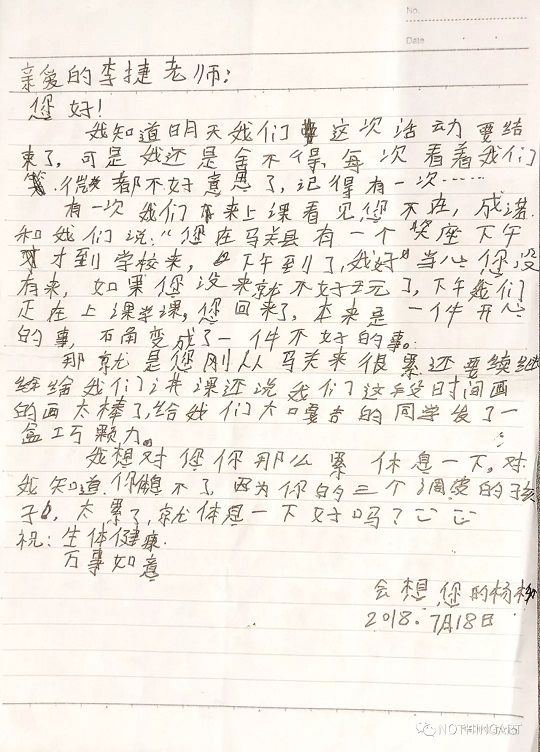 No.
Date
亲爱的李捷老师：
您好！
我知道明天我们 这次活动要结
束了，可是我还是舍不得，每次看着我们
笑 都不好意思了，记得有一次……
有一次我们 来上课看见您不在，成诺
和我们说：“您在马关县有一个 座下午
才到学校来，“下午到了，我好“当心”您没
有来，如果您没来就不好玩了，下午我们
正在上课学课，您回来了，本来是一件开心
的事， 变成了一件不好的事。
那就是您刚从马关来很累还要续继
给我们讲课还说我们这段时间画
的画太棒了，给我们 的同学发了一
盒工巧颗力。
我想对您你那么累休息一下，对
我知道，你 不了，因为你的三个调皮的孩
子，太累了，就体息一下好吗？
祝：生体健康
万事如意
会想您的杨
2018.7月18日
NOTHINGART